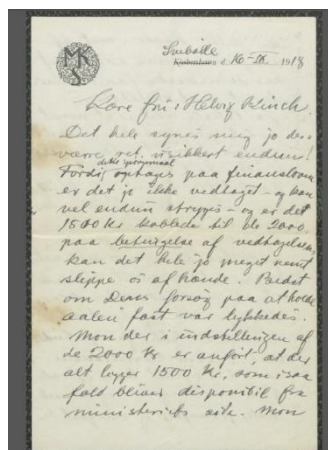 MKS
Svebølle
København d. 16-IX 1918
Kære fru Helvig Kinch.
Det hele synes mig jo des-
værre ret usikkert endnu!
dette spørgsmaal
Fordi optages paa finansloven
er det jo ikke vedtaget - og kan
vel endnu stryges - og er det
1500 Kr koblede til de 2000
paa betingelse af vedtagelsen,
kan det hele jo meget nemt
slippe os af hænde. Bedst
om Deres forsøg paa at holde
aalen fast var lykkedes.
Mon der i indstillingen af
de 2000 Kr er anført, at der
alt ligger 1500 Kr, som i saa
fald bliver disponibil fra
ministeriets side. Mon